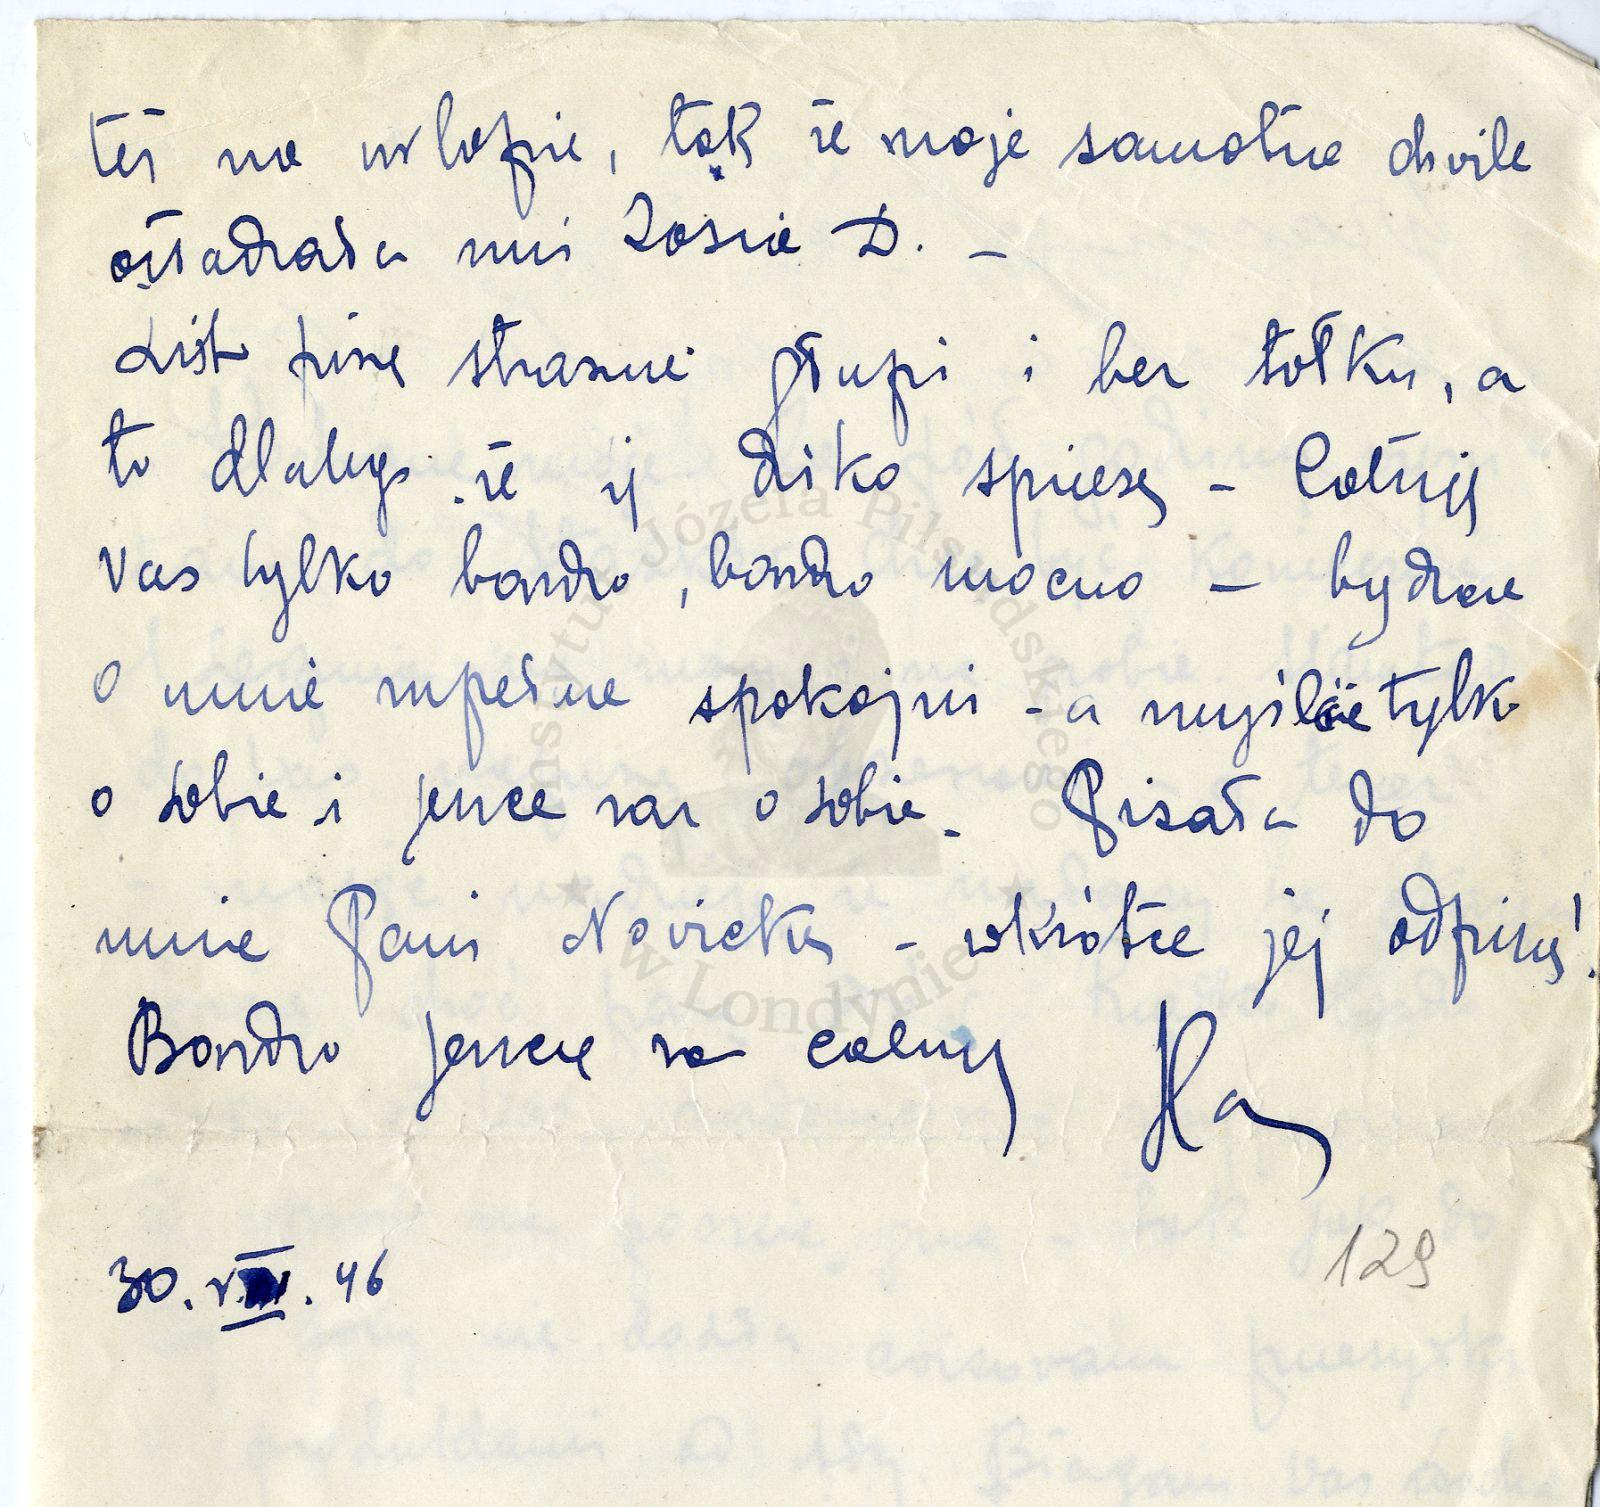 też na urlopie, tak że moje samotne chwile
osładzała mi Zosia D. –
List piszę strasznie głupi i bez tołku, a
to dlatego że się dziko spieszę – Całuję
Was tylko bardzo, bardzo mocno – bądźcie
o mnie zupełnie spokojni – a myślcie tylko
o sobie i jeszcze raz o sobie – Pisała do
mnie Pani Nowicka – wkrótce jej odpiszę!
Bardzo jeszcze raz całuję
30. VIII. 46
129
Instytut Józefa Piłsudskiego
w Londynie